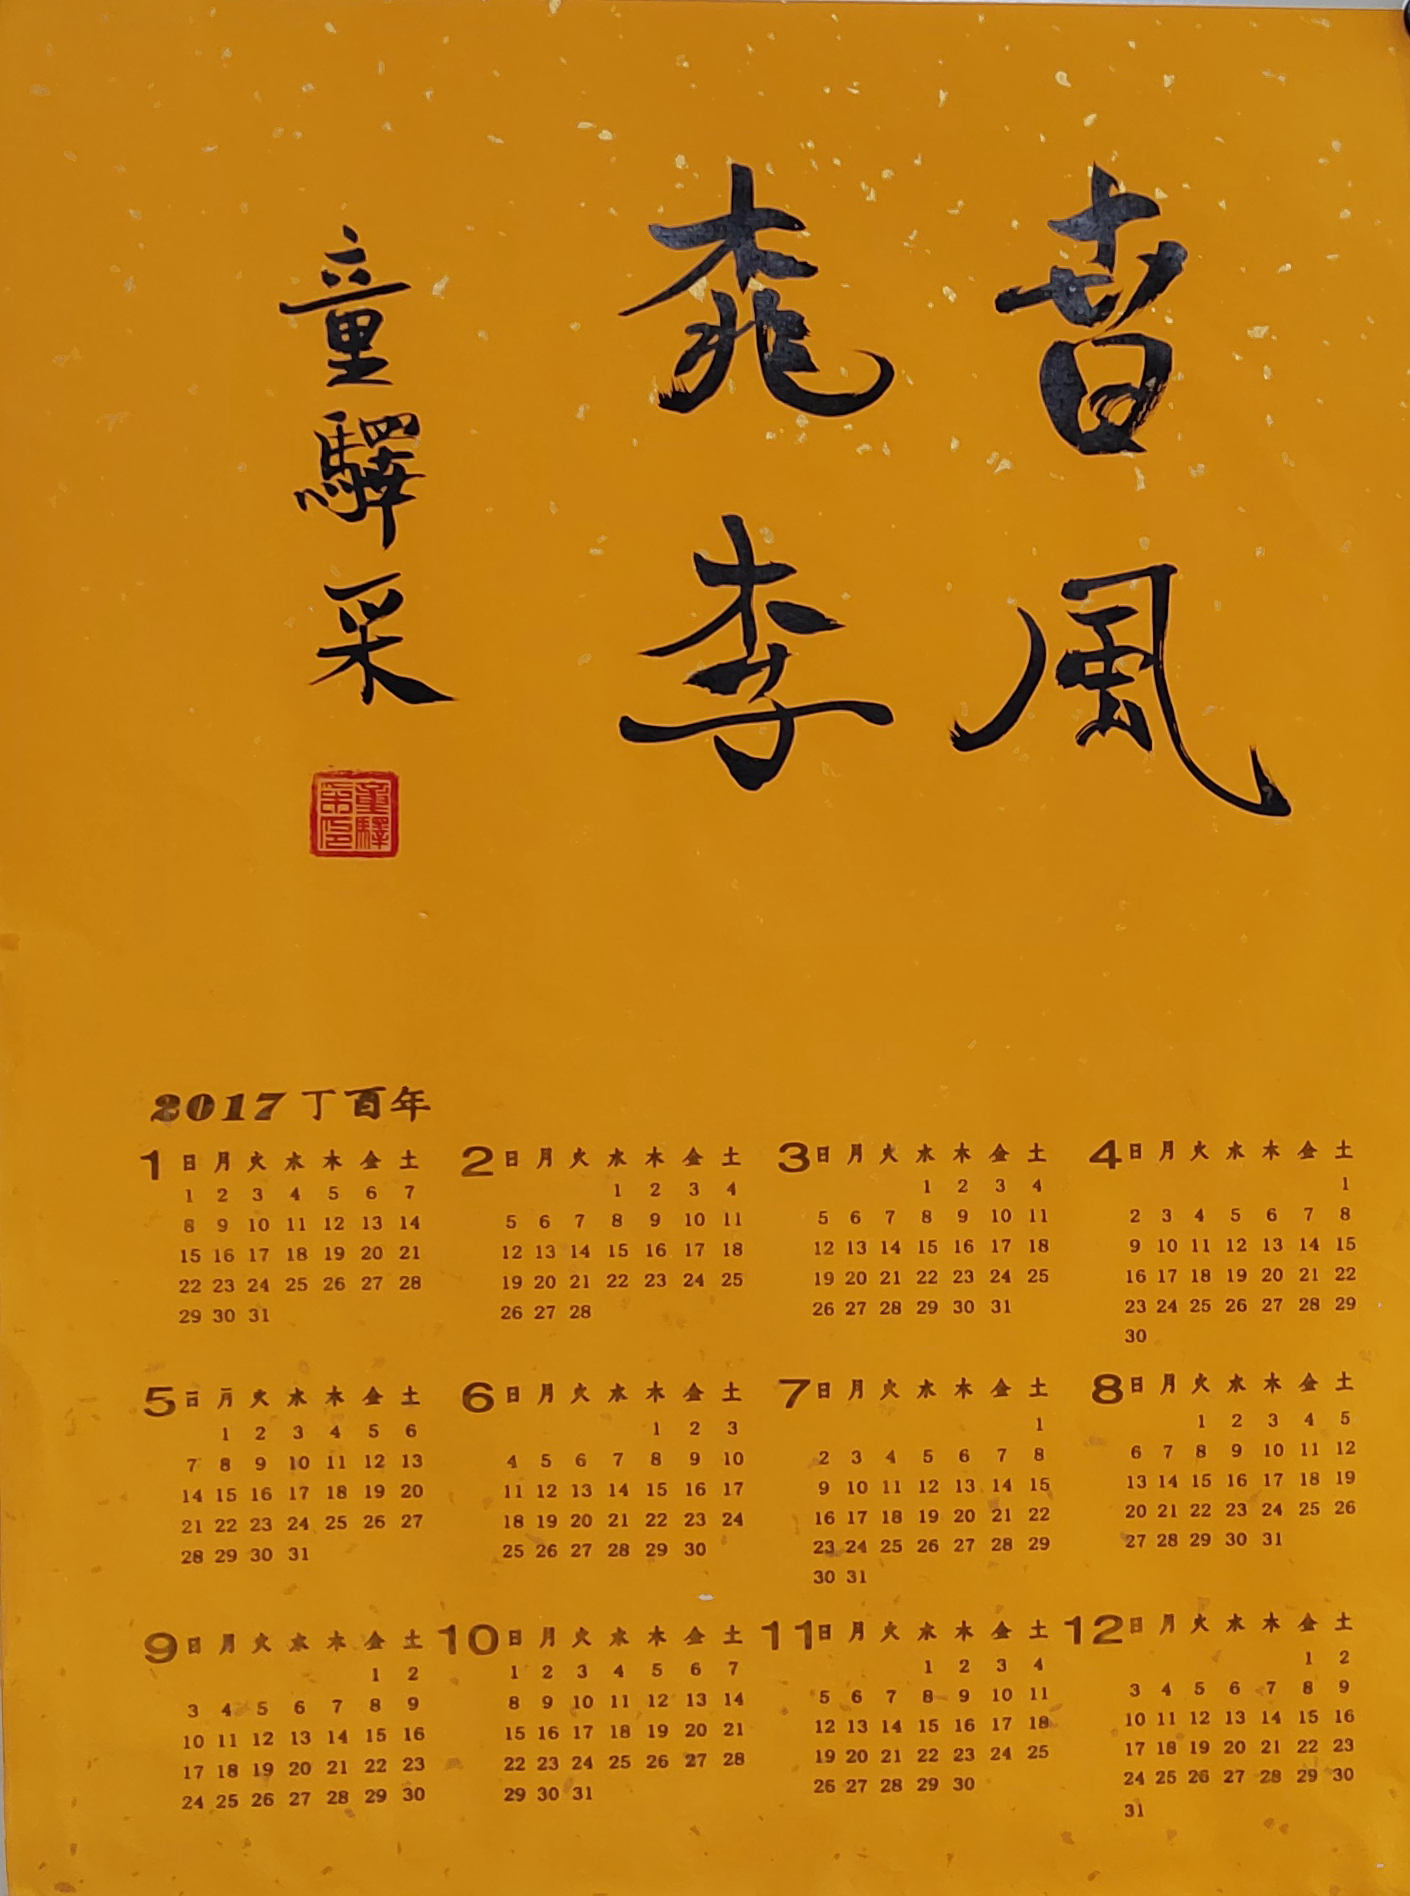 旾風
桃李
童驛采
童驛
采印
2017 丁酉年
1 日 月 火 水 木 金 土
1 2 3 4 5 6 7
8 9 10 11 12 13 14
15 16 17 18 19 20 21
22 23 24 25 26 27 28
29 30 31
2 日 月 火 水 木 金 土
1 2 3 4
5 6 7 8 9 10 11
12 13 14 15 16 17 18
19 20 21 22 23 24 25
26 27 28
3 日 月 火 水 木 金 土
1 2 3 4
5 6 7 8 9 10 11
12 13 14 15 16 17 18
19 20 21 22 23 24 25
26 27 28 29 30 31
4 日 月 火 水 木 金 土
1
2 3 4 5 6 7 8
9 10 11 12 13 14 15
16 17 18 19 20 21 22
23 24 25 26 27 28 29
30
5 日 月 火 水 木 金 土
1 2 3 4 5 6
7 8 9 10 11 12 13
14 15 16 17 18 19 20
21 22 23 24 25 26 27
28 29 30 31
6 日 月 火 水 木 金 土
1 2 3
4 5 6 7 8 9 10
11 12 13 14 15 16 17
18 19 20 21 22 23 24
25 26 27 28 29 30
7 日 月 火 水 木 金 土
1
2 3 4 5 6 7 8
9 10 11 12 13 14 15
16 17 18 19 20 21 22
23 24 25 26 27 28 29
30 31
8 日 月 火 水 木 金 土
1 2 3 4 5
6 7 8 9 10 11 12
13 14 15 16 17 18 19
20 21 22 23 24 25 26
27 28 29 30 31
9 日 月 火 水 木 金 土
1 2
3 4 5 6 7 8 9
10 11 12 13 14 15 16
17 18 19 20 21 22 23
24 25 26 27 28 29 30
10 日 月 火 水 木 金 土
1 2 3 4 5 6 7
8 9 10 11 12 13 14
15 16 17 18 19 20 21
22 23 24 25 26 27 28
29 30 31
11 日 月 火 水 木 金 土
1 2 3 4
5 6 7 8 9 10 11
12 13 14 15 16 17 18
19 20 21 22 23 24 25
26 27 28 29 30
12 日 月 火 水 木 金 土
1 2
3 4 5 6 7 8 9
10 11 12 13 14 15 16
17 18 19 20 21 22 23
24 25 26 27 28 29 30
31